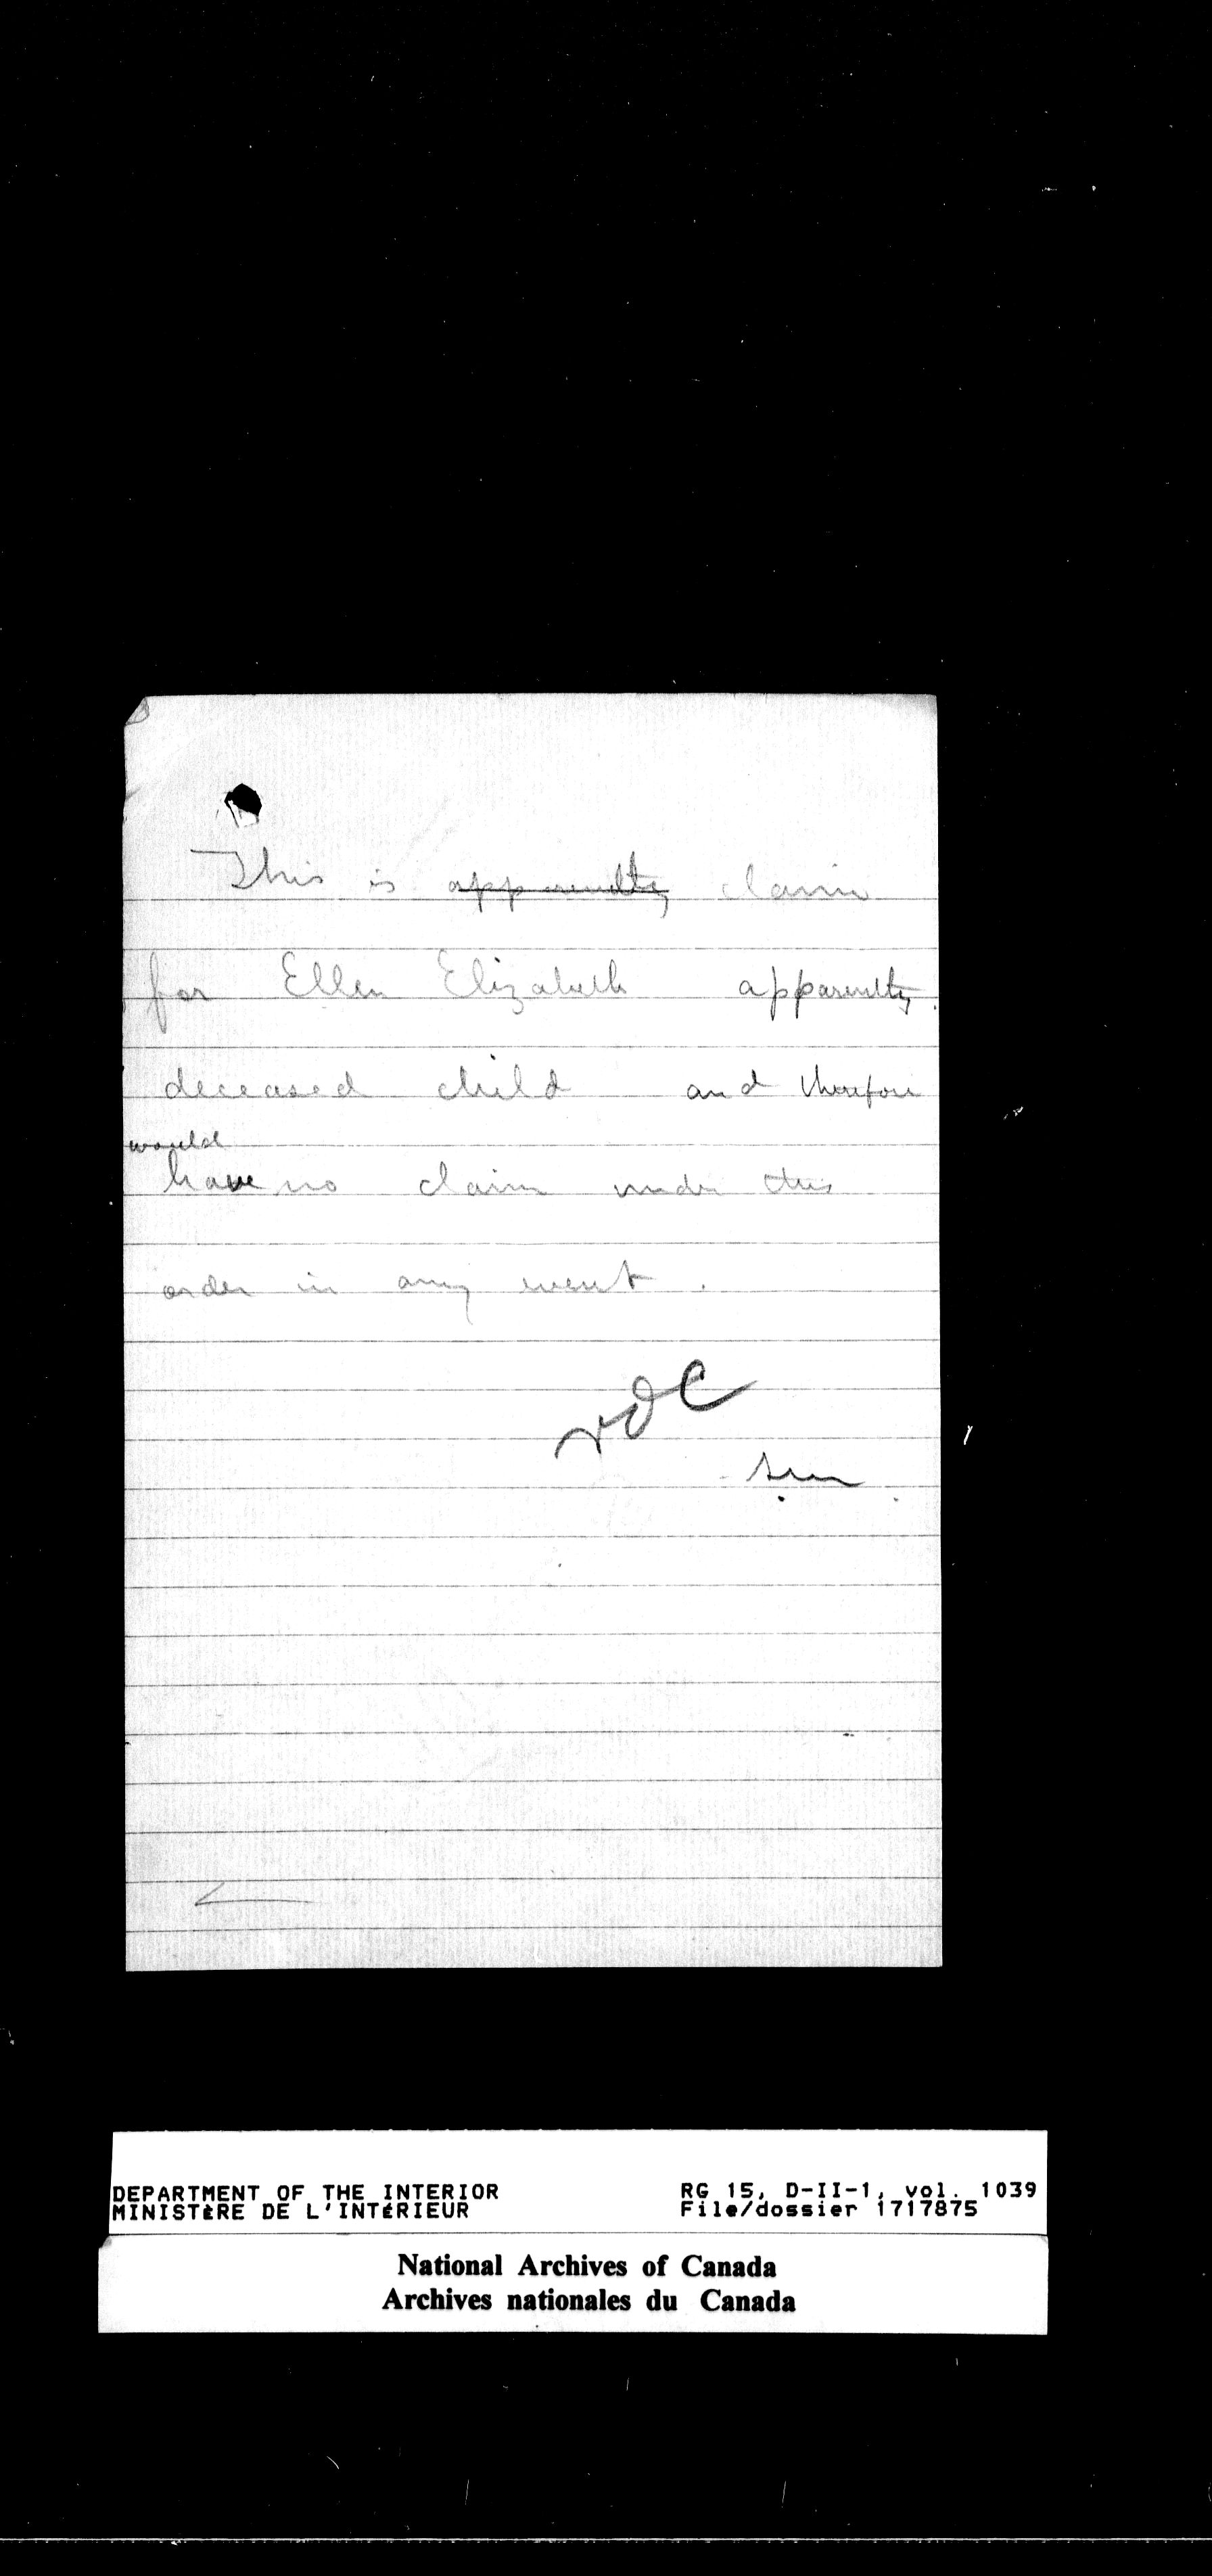 This is apparently claim
for Ellen Elizabeth apparently
deceased child and therefore
would
have no claim under this
order in any event.
DEPARTMENT OF THE INTERIOR RG 15, D-II-1, vol. 1039
MINISTÈRE DE L'INTÉRIEUR File/dossier 1717875
National Archives of Canada
Archives nationales du Canada